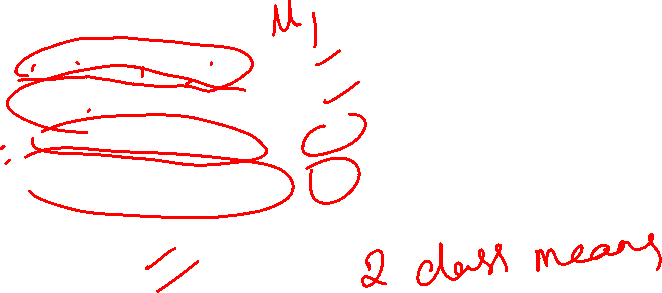 μ1
2 class means